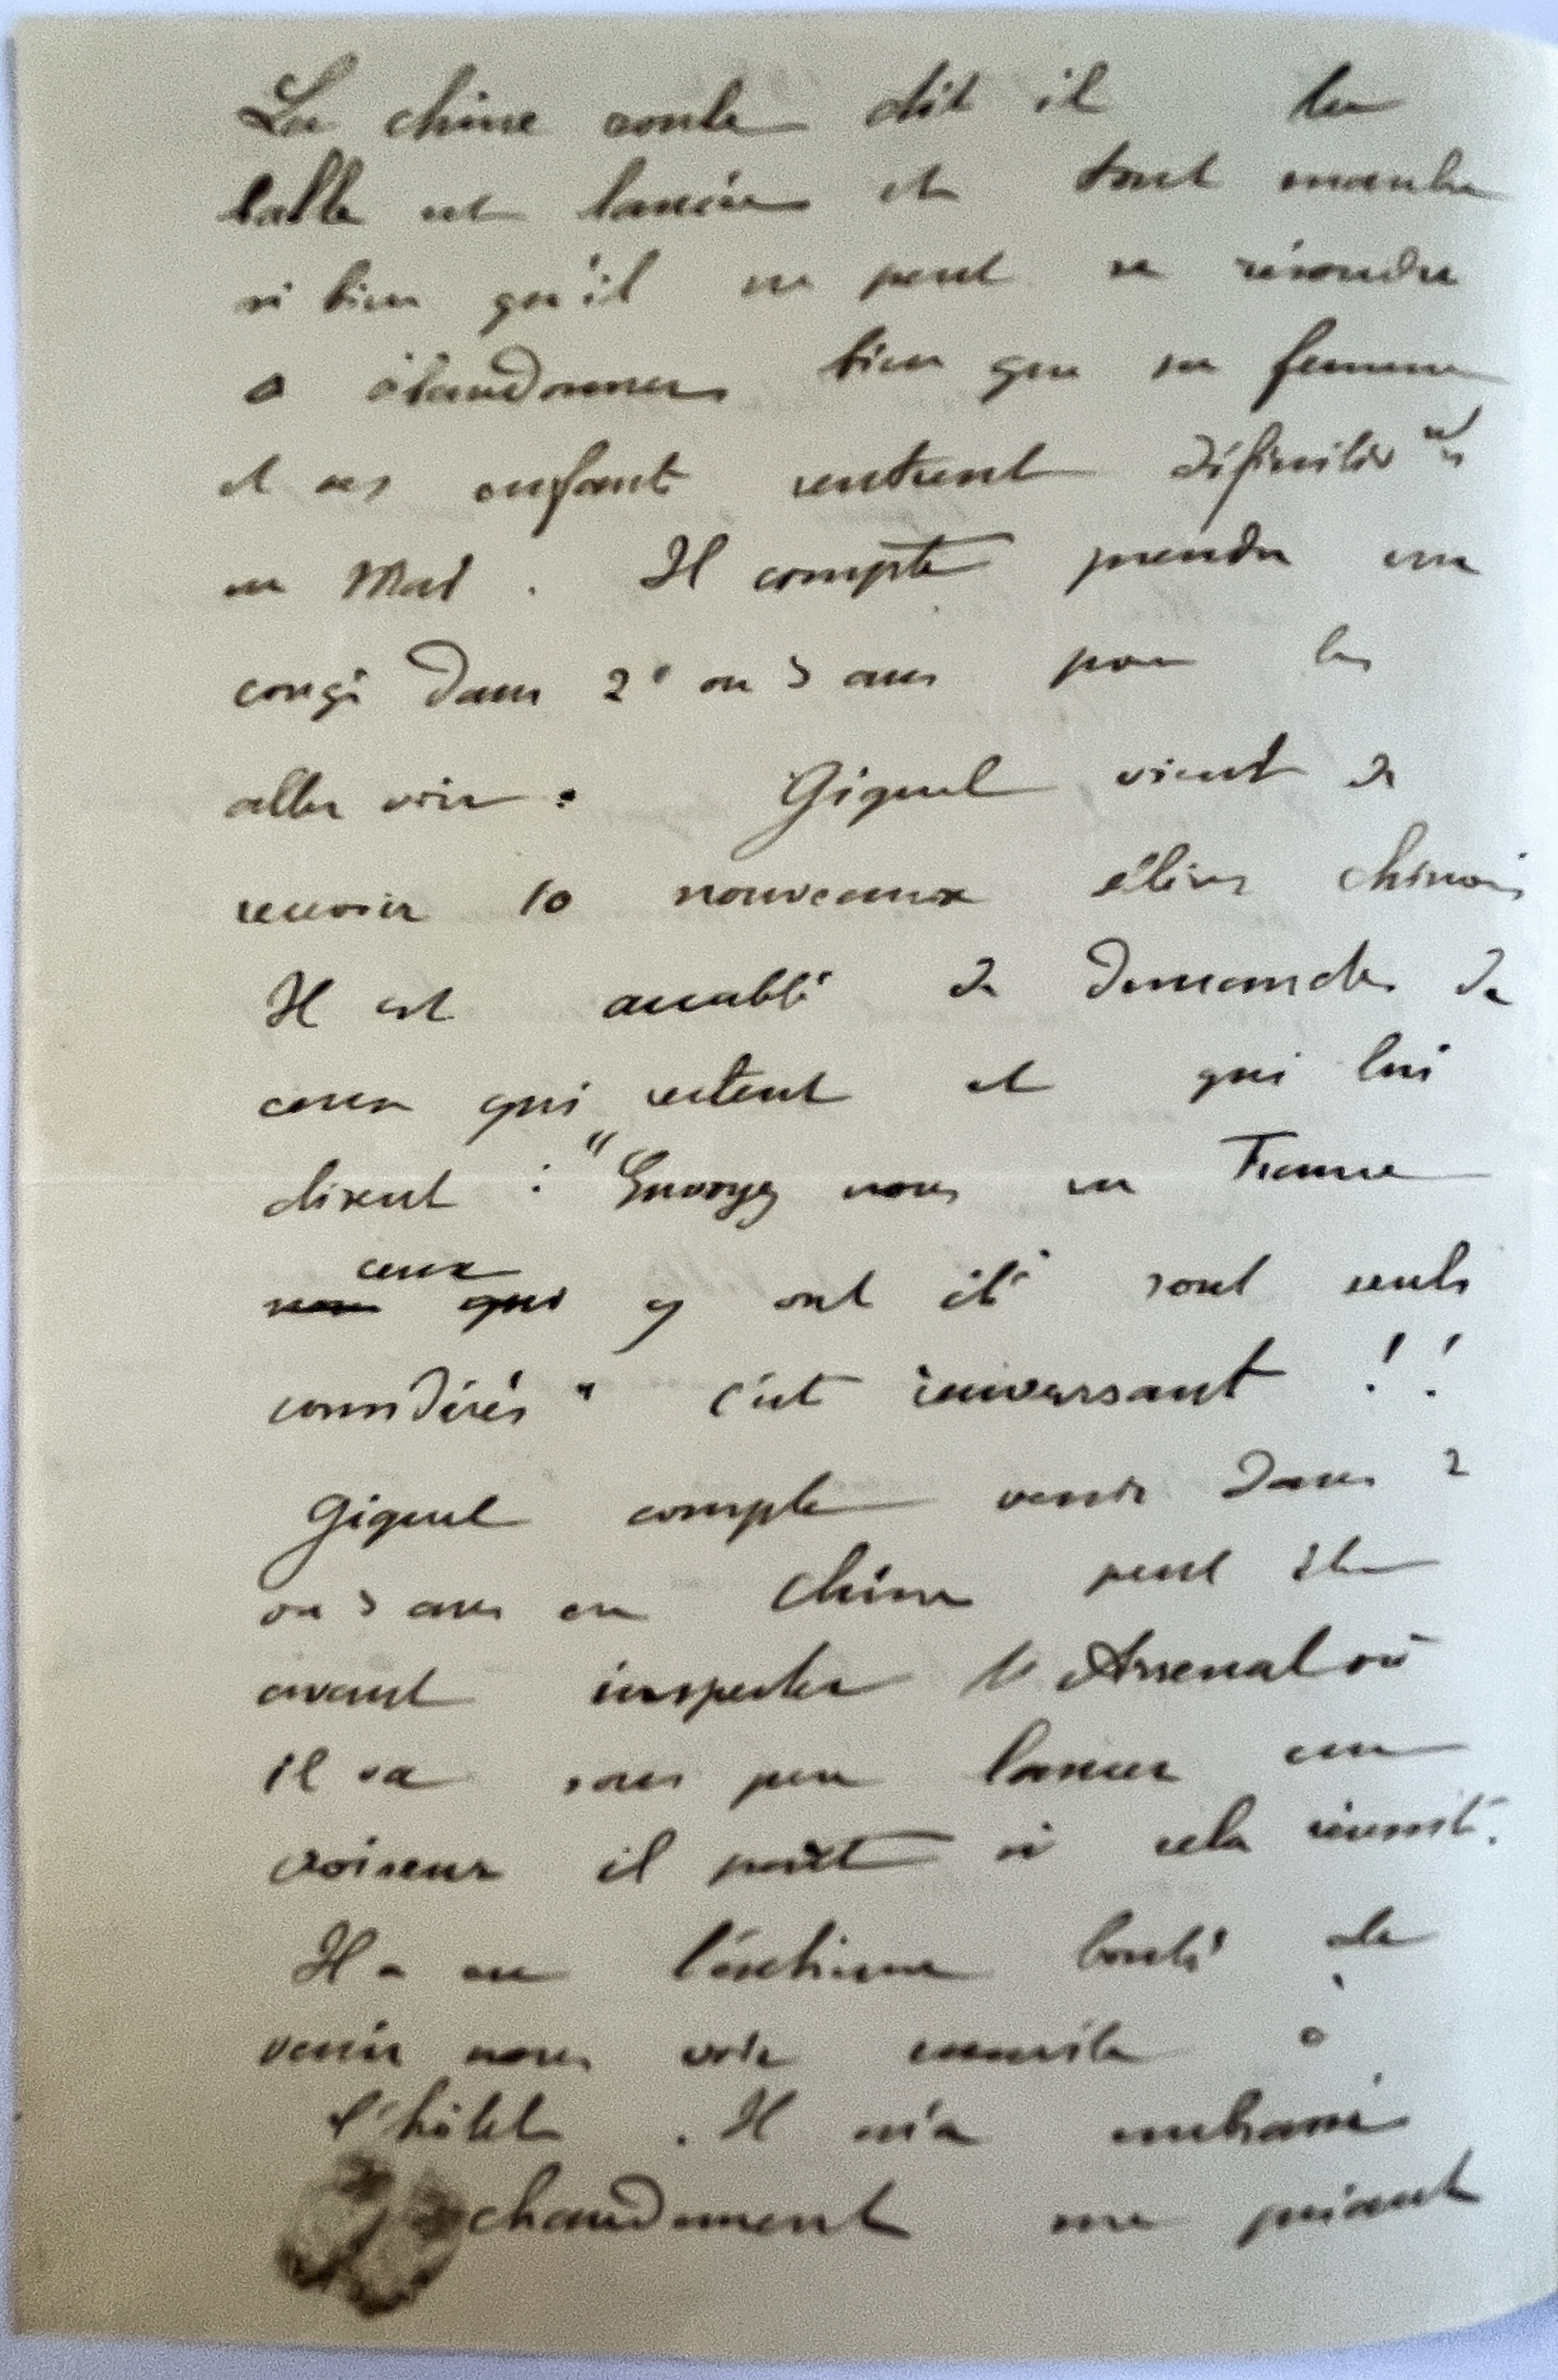 La chine roule dit il la
balle est lancée et tout marche
si bien qu'il ne peut se résoudre
a abandonner bien que sa femme
et ses enfants rentrent définitiv
en Mai. Il compte prendre un
congé dans 2 ou 3 ans pour les
aller voir. Giquel vient de
recevoir 10 nouveaux élèves chinois
Il est accablé de demandes de
ceux qui restent et qui lui
disent : "Envoyez nous en France
ceux
qui y ont été sont seuls
considérés" c'est renversant !!
Giquel compte venir dans 2
ou 3 ans en Chine peut être
avant inspecter l'Arsenal où
il va sous peu lancer un
croiseur il part si cela réussit.
Il a eu l'extrême bonté de
venir nous voir ensuite à
l'hôtel. Il m'a embrassé
chaudement me priant